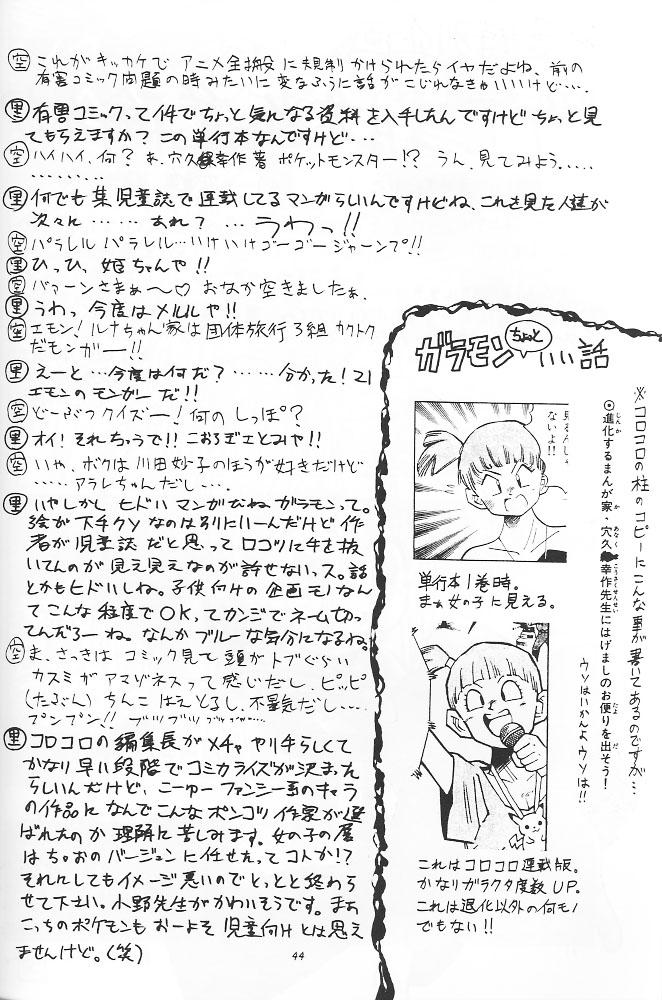 空 これがキッカケで アニメ全搬 に規制かけられたらイヤだよね、前の
有害コミック問題の時みたいに変なふうに話がこじれなきゃいいけど‥‥。
里 有害コミックって件でちょっと気になる資料を入手したんですけど ちょっと見
てもらえますか? この単行本なんですけど・・・
空 ハイハイ、何? あ、穴久保幸作 著 ポケットモンスター!? うん、見てみよう‥‥‥
‥‥‥‥‥
里 何でも 某児童誌で連載してるマンガらしいんですけどね、これを見た人達が
次々に‥‥‥ あれ? ‥‥ うわっ!!
空 パラレル パラレル‥‥いけいけゴーゴージャーンプ!!
里 ひっひ、姫ちゃんや!!
空 バァーンさまぁ〜♡ おなか空きましたぁ、
里 うわっ 今度はメルルや!!
空 エモン! ルナちゃん家は団体旅行 3組 カクトク
だモンガー!!
里 えーと‥‥今度は何だ? ‥‥‥ 分かった! 21
エモンのモンガー だ!!
空 どーぶつクイズー! 何のしっぽ?
里 オイ! それちゃうで!! こおろぎさとみや!!
空 いや、ボクは川田妙子のほうが好きだけど
‥‥‥アラレちゃんだし‥‥
里 いやしかし ヒドい マンガだねガラモンって。
絵が下手クソなのは別にいーんだけど作
者が児童誌だと思ってロコツに手を抜
いてんのが見え見えなのが許せないっス。話
とかもヒドいしね。子供向けの企画モノなん
てこんな程度でOK、ってカンジでネーム切っ
てんだろーね。なんかブルーな気分になるね。
空 ま、さっきはコミック見て頭がトブぐらい
カスミがアマゾネスって感じだし、ピッピ
(たぶん) ちんこ はえとるし、不景気だし‥‥
プンプン!! ブツブツブツブツ‥‥‥
里 コロコロの編集長がメチャやり手らしくて
かなり早い段階でコミカライズが決まった
らしいんだけど、こーゆーファンシー系のキャラ
の作品になんでこんなポンコツ作家が選
ばれたのか理解に苦しみます。女の子の層
はちゃおのバージョンに任せたってコトか!?
それにしてもイメージ悪いのでとっとと終わら
せて下さい。小野先生がかわいそうです。まぁ
こっちのポケモンもおーよそ児童向けとは思え
ませんけど。(笑)
ガラモン ちょっと いい話
※コロコロの柱のコピーにこんな事が書いてあるのですが‥‥
◎進化するまんが家・穴久保幸作先生にはげましのお便りを出そう!
ウソはいかんよウソは!!
見るんじゃ
ないよ!!
単行本1巻時。
まぁ女の子に見える。
これはコロコロ連載版。
かなりガラクタ度数UP。
これは退化以外の何モノ
でもない!!
44